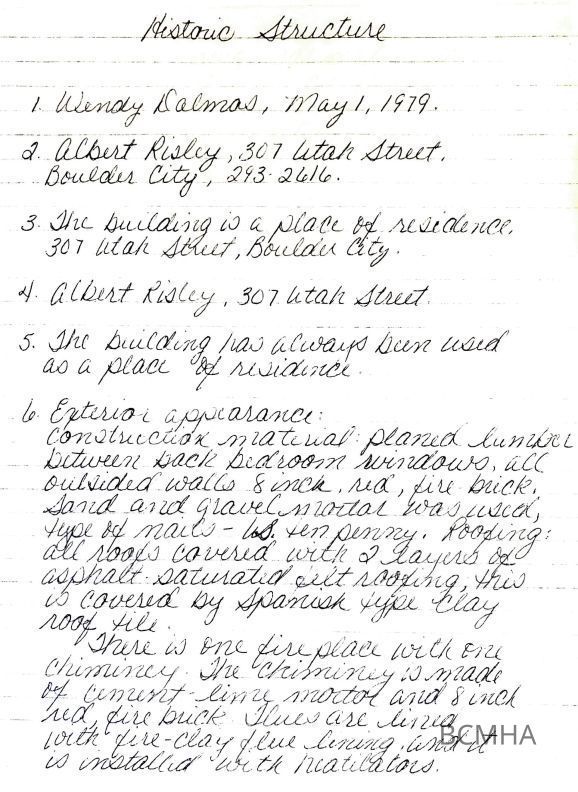 Historic Structure
1. Wendy Dalmas, May 1, 1979.
2. Albert Risley, 307 Utah Street,
Boulder City, 293-2616.
3. The building is a place of residence,
307 Utah Street, Boulder City.
4. Albert Risley, 307 Utah Street.
5. The building has always been used
as a place of residence.
6. Exterior appearance:
construction material: planed lumber
between back bedroom windows, all
outsided walls 8 inch, red, fire brick.
Sand and gravel mortar was used,
type of nails - U.S. ten penny. Roofing:
all roofs covered with 2 layers of
asphalt-saturated felt roofing, this
is covered by Spanish type clay
roof tile.
There is one fireplace with one
chiminey. The chiminey is made
of cement-lime mortor and 8 inch
red, fire brick. Flues are lined
with fire-clay flue lining, and it
is installed with
BCMHA